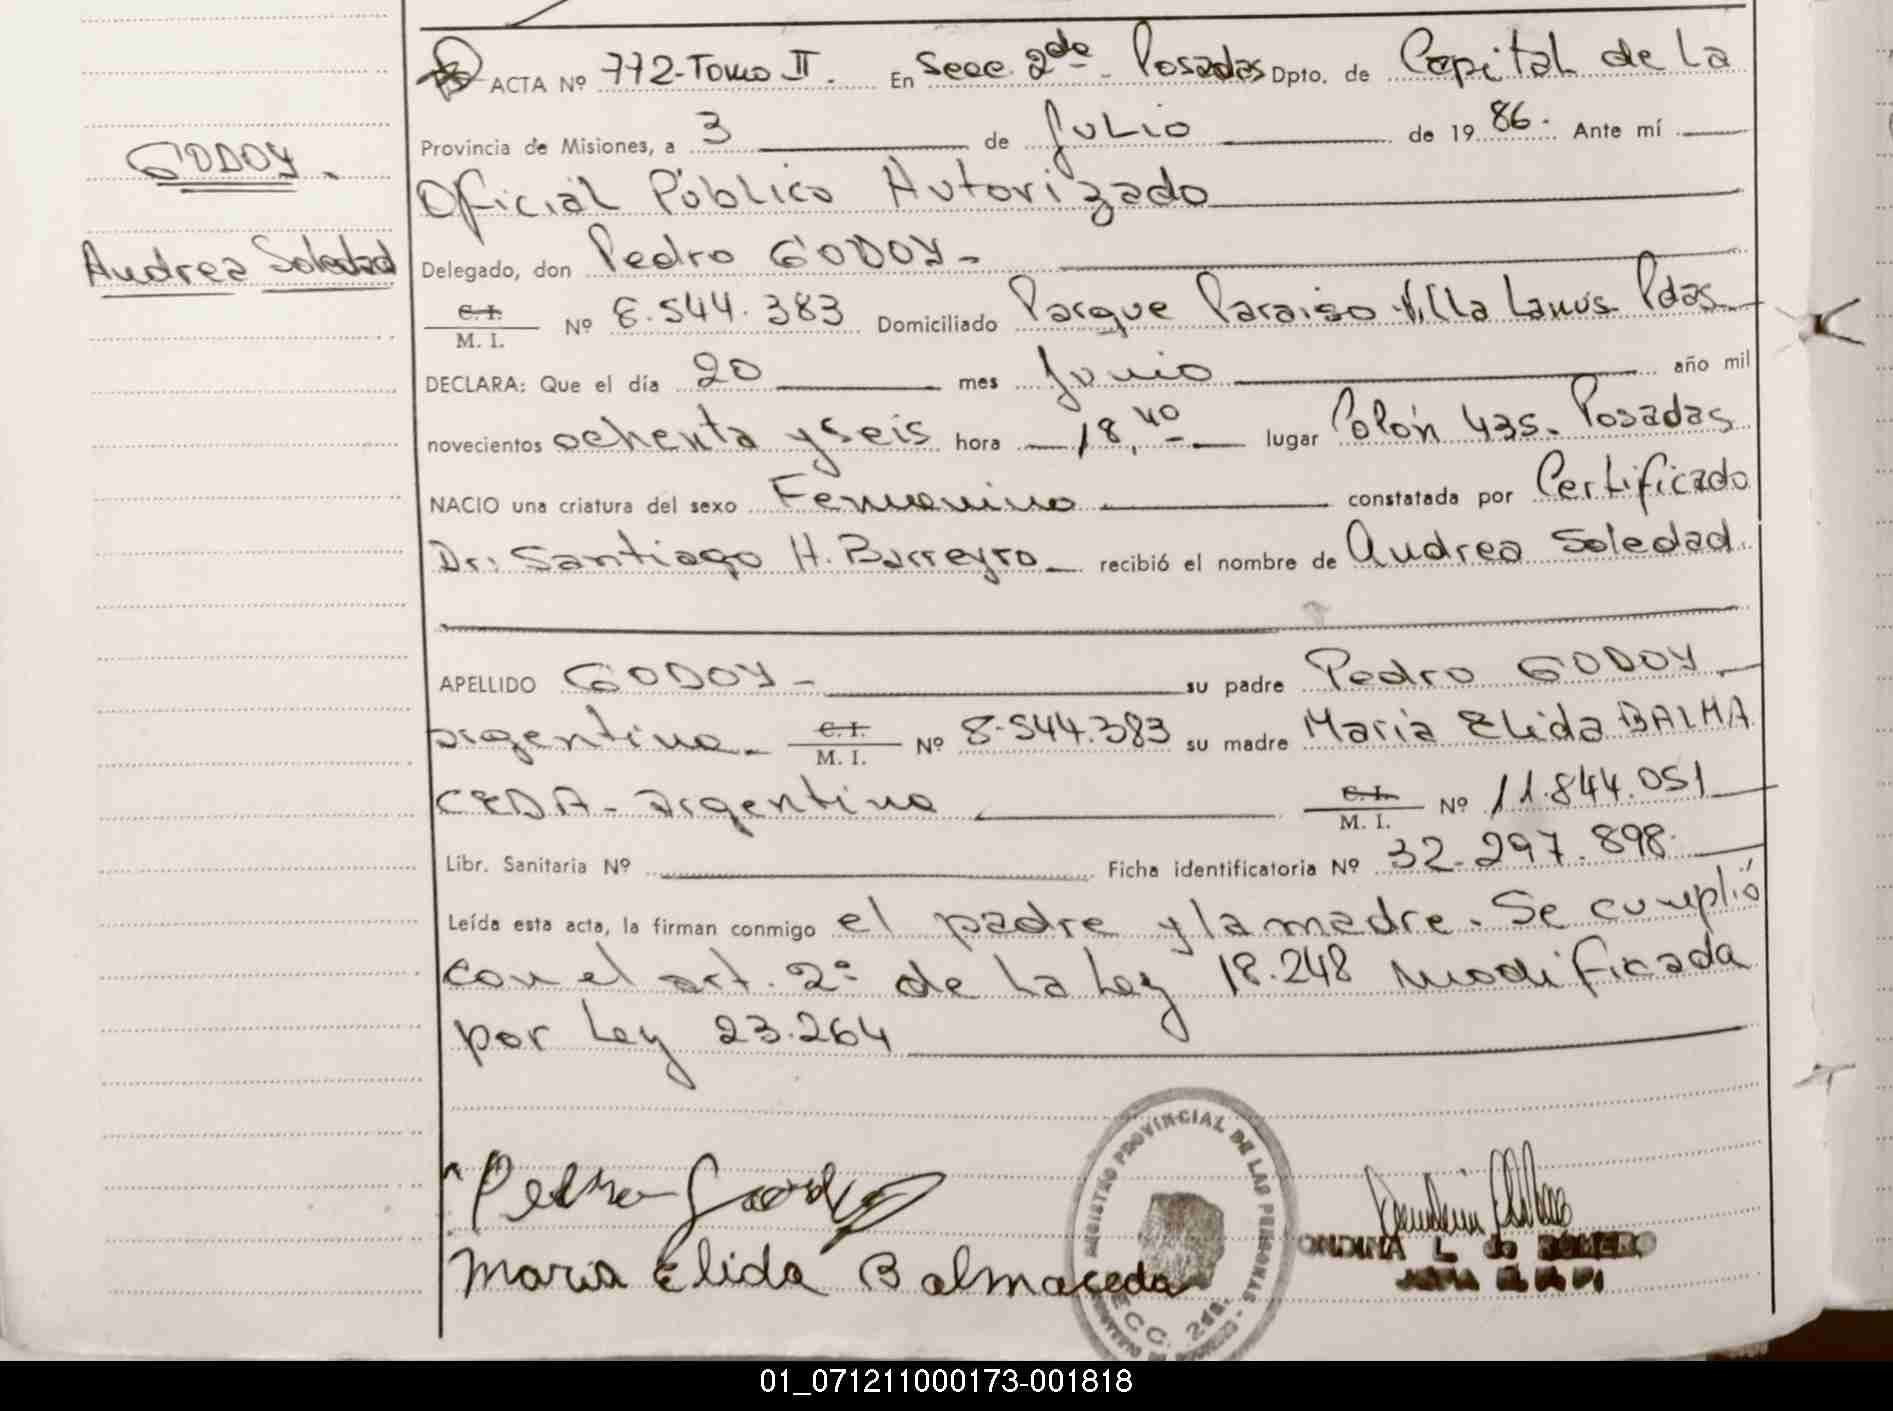 ACTA Nº 772-Tomo II. En Secc. 2da. Posadas Dpto. de Capital de La
Provincia de Misiones, a 3 de Julio de 19 86. Ante mí
Oficial Público Autorizado
GODOY.
Andrea Soledad
Delegado, don Pedro GODOY-
C.I.
M. I. Nº 8.544.383 Domiciliado Parque Paraiso Villa Lanús Pdas.
DECLARA: Que el día 20 mes Junio año mil
novecientos ochenta y seis hora 18,40 lugar Colón 435. Posadas
NACIO una criatura del sexo Femenino constatada por Certificado
Dr. Santiago H. Barreyro recibió el nombre de Andrea Soledad.
APELLIDO GODOY- su padre Pedro GODOY
argentino- C.I.
M. I. Nº 8.544.383 su madre Maria Elida BALMA
CEDA-Argentina C.I.
M. I. Nº 11.844.051
Libr. Sanitaria Nº Ficha identificatoria Nº 32.297.898.
Leída esta acta, la firman conmigo el padre y la madre. Se cumplió
con el art. 2º de la Ley 18.248 modificada
por Ley 23.264
Pedro Godoy
Maria Elida Balmaceda
REGISTRO PROVINCIAL DE LAS PERSONAS
SECC. 2da.
ONDINA L. de ROMERO
01_071211000173-001818